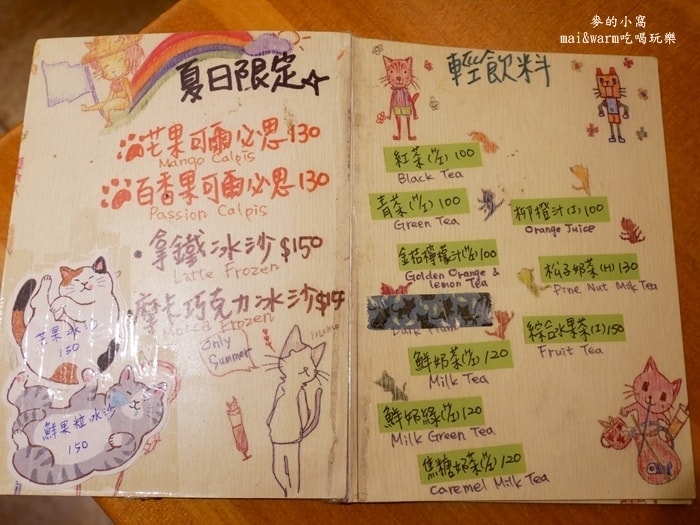 麥的小窩
mai&warm吃喝玩樂
夏日限定☆
芒果可爾必思130
Mango Calpis
百香果可爾必思130
Passion Calpis
·拿鐵冰沙$150
Latte Frozen
·摩卡巧克力冰沙
Mocca Frozen
only
Summer
芒果冰沙
150
鮮果粒冰沙
150
輕飲料
紅茶(H/I)100
Black Tea
青茶(H/I)100
Green Tea
金桔檸檬汁(H/I)100
Golden Orange &
lemon Tea
Dark Plum
鮮奶茶(H/I)120
Milk Tea
鮮奶綠(H/I)120
Milk Green Tea
焦糖奶茶(H/I)120
caremel Milk Tea
柳橙汁(I)100
Orange Juice
松子奶茶(H)130
Pine Nut Milk Tea
綜合水果茶(I)150
Fruit Tea